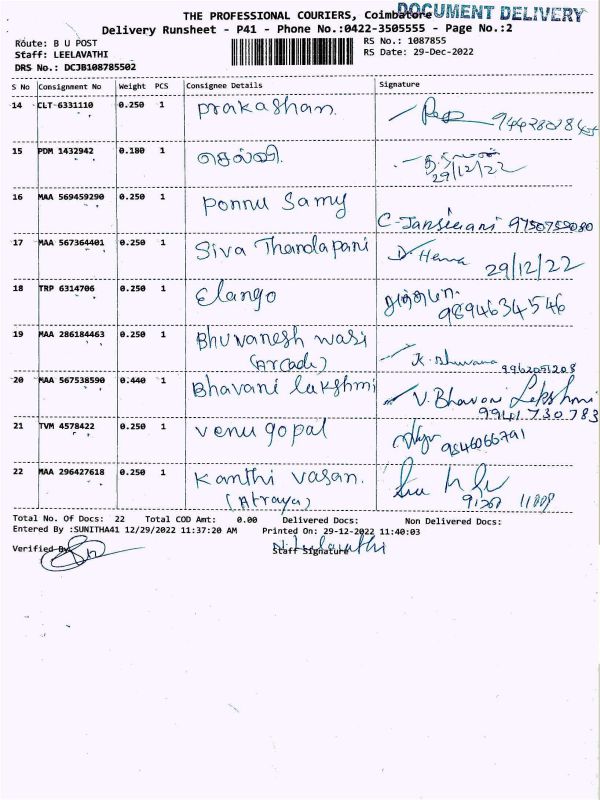 THE PROFESSIONAL COURIERS, Coimbatore
DOCUMENT DELIVERY
Delivery Runsheet - P41 - Phone No.:0422-3505555 - Page No.:2
Route: B U POST
RS No.: 1087855
Staff: LEELAVATHI
RS Date: 29-Dec-2022
DRS No.: DCJB108785502
S No Consignment No Weight PCS Consignee Details Signature
14 CLT 6331110 0.250 1 Prakashan.
15 PDM 1432942 0.180 1 செல்வி.
29/12/22
16 MAA 569459290 0.250 1 Ponnu Samy
C-Jansirani 9750759080
17 MAA 567364401 0.250 1 Siva Thandapani D. Hema
29/12/22
18 TRP 6314706 0.250 1 Elango
9894634546
19 MAA 286184463 0.250 1 Bhuvanesh wasi
(Arcade) K. Bhuvana 9962051208
20 MAA 567538590 0.440 1 Bhavani lakshmi V. Bhavani Lekshmi
9941730783
21 TVM 4578422 0.250 1 Venu gopal
9846066791
22 MAA 296427618 0.250 1 Kanthi vasan.
(Atraya)
Total No. Of Docs: 22 Total COD Amt: 0.00 Delivered Docs: Non Delivered Docs:
Entered By :SUNITHA41 12/29/2022 11:37:20 AM Printed On: 29-12-2022 11:40:03
Verified By
Staff Signature
N. Leelavathi